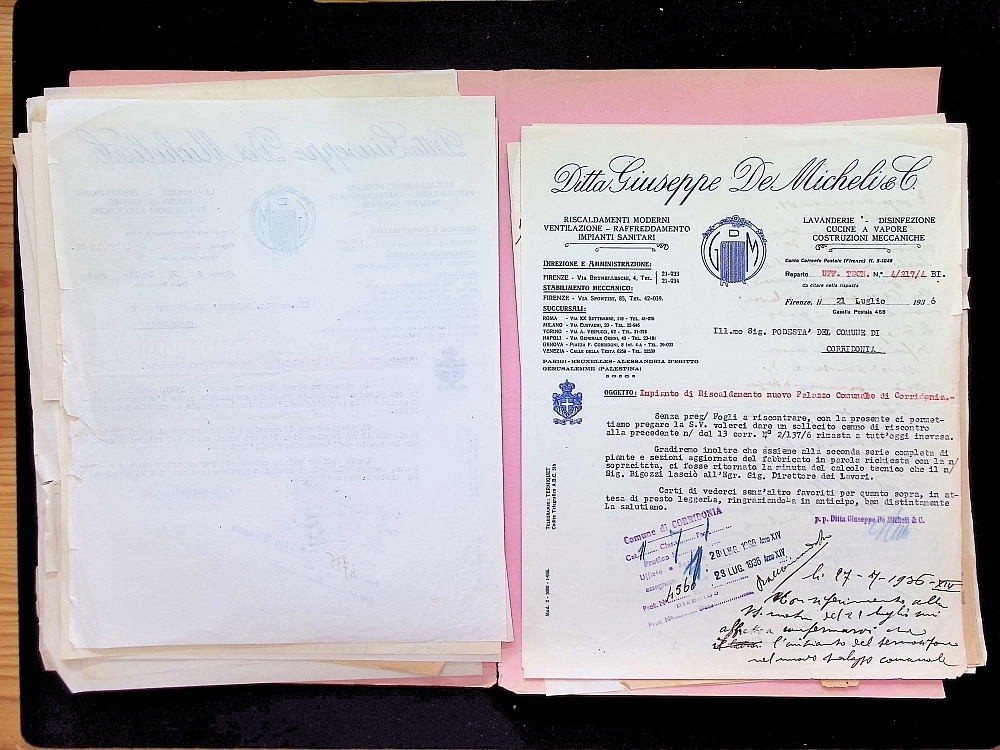 Ditta Giuseppe De Micheli & C.
RISCALDAMENTI MODERNI
VENTILAZIONE - RAFFREDDAMENTO
IMPIANTI SANITARI
G M
LAVANDERIE - DISINFEZIONE
CUCINE A VAPORE
COSTRUZIONI MECCANICHE
DIREZIONE E AMMINISTRAZIONE:
FIRENZE - VIA BRUNELLESCHI, 4, TEL. 21-233
21-234
STABILIMENTO MECCANICO:
FIRENZE - VIA SPONTINI, 85, TEL. 42-039.
SUCCURSALI:
ROMA - VIA XX SETTEMBRE, 118 - TEL.
MILANO - VIA EUSTACHI, 20 - TEL.
TORINO - VIA A. VESPUCCI, 62 - TEL.
NAPOLI - VIA GENERALE ORSINI, 40 - TEL.
GENOVA - PIAZZA F. CORRIDONI, 8 Int. 4 A - TEL.
VENEZIA - CALLE DELLA TESTA 6258 - TEL. 22530
PARIGI - BRUXELLES - ALESSANDRIA D'EGITTO
GERUSALEMME (PALESTINA)
Conto Corrente Postale (Firenze) N. 5-1048
Reparto UFF. TECN. N.° 4/217/4 BI.
da citare nella risposta
Firenze, li 21 Luglio 1936
Casella Postale 488
Ill.mo Sig. PODESTA' DEL COMUNE DI
CORRIDONIA
OGGETTO: Impianto di Riscaldamento nuovo Palazzo Comunale di Corridonia.-
Senza preg/ Fogli a riscontrare, con la presente ci permet-
tiamo pregare la S.V. volerci dare un sollecito cenno di riscontro
alla precedente n/ del 13 corr. N° 2/137/6 rimasta a tutt'oggi inevasa.
Gradiremo inoltre che assieme alla seconda serie completa di
piante e sezioni aggiornate del fabbricato in parola richieste con la n/
sopracitata, ci fosse ritornata la minuta del calcolo tecnico che il n/
Sig. Bigozzi lasciò all'Egr. Sig. Direttore dei Lavori.
Certi di vederci senz'altro favoriti per quanto sopra, in at-
tesa di presto leggerLa, ringraziandoLa in anticipo, ben distintamente
La salutiamo.
p. p. Ditta Giuseppe De Micheli & C.
TELEGRAMMI: TERMIQUET
Codice Telegrafico A.B.C. 5th
Comune di CORRIDONIA
Cat. Class. Fasc.
Pratica
Ufficio
assegnata
Prot. N. 4566
Prot. N. Data
23 LUG. 1936 Anno XIV
23 LUG 1936 Anno XIV
li 27-7-1936-XIV
Con riferimento alla
del 21 luglio
confermarvi che
l'impianto del termosifone
nel nuovo palazzo comunale